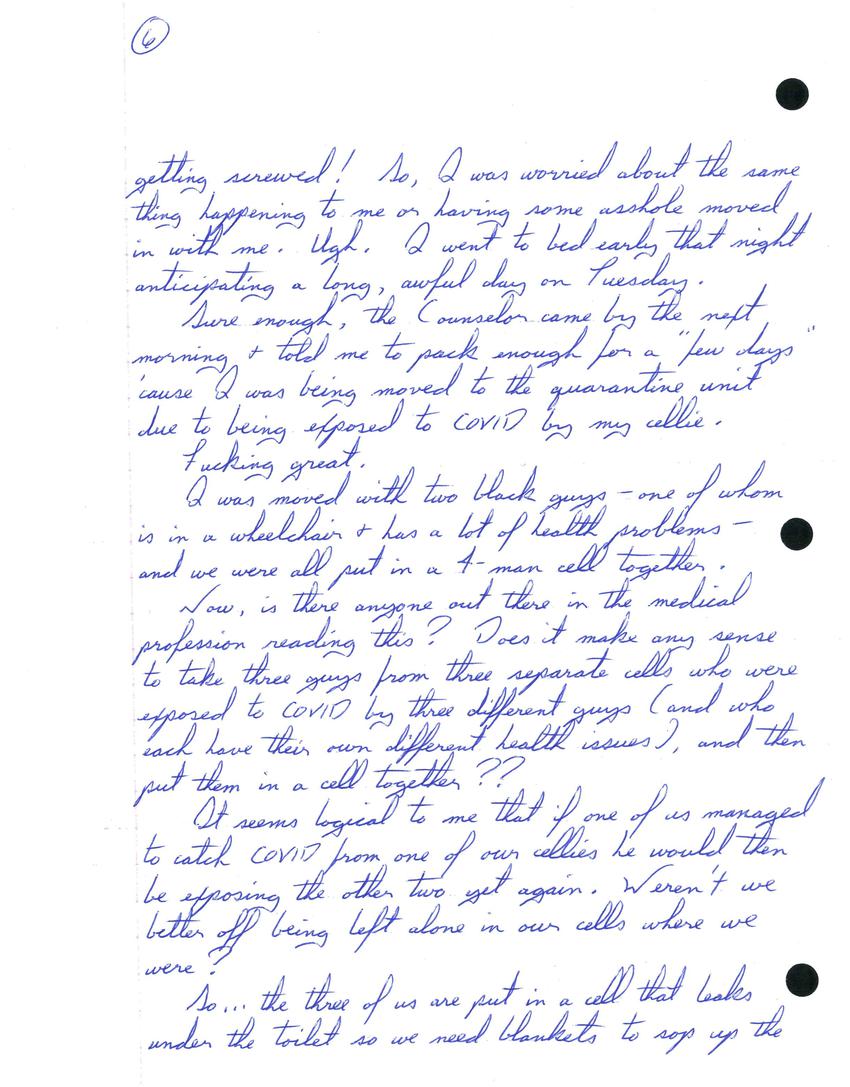 6
getting screwed! So, I was worried about the same
thing happening to me or having some asshole moved
in with me. Ugh. I went to bed early that night
anticipating a long, awful day on Tuesday.
Sure enough, the Counselor came by the next
morning + told me to pack enough for a "few days"
'cause I was being moved to the quarantine unit
due to being exposed to COVID by my cellie.
Fucking great.
I was moved with two black guys - one of whom
is in a wheelchair + has a lot of health problems -
and we were all put in a 4-man cell together.
Now, is there anyone out there in the medical
profession reading this? Does it make any sense
to take three guys from three separate cells who were
exposed to COVID by three different guys (and who
each have their own different health issues), and then
put them in a cell together??
It seems logical to me that if one of us managed
to catch COVID from one of our cellies he would then
be exposing the other two yet again. Weren't we
better off being left alone in our cells where we
were?
So... the three of us are put in a cell that leaks
under the toilet so we need blankets to sop up the